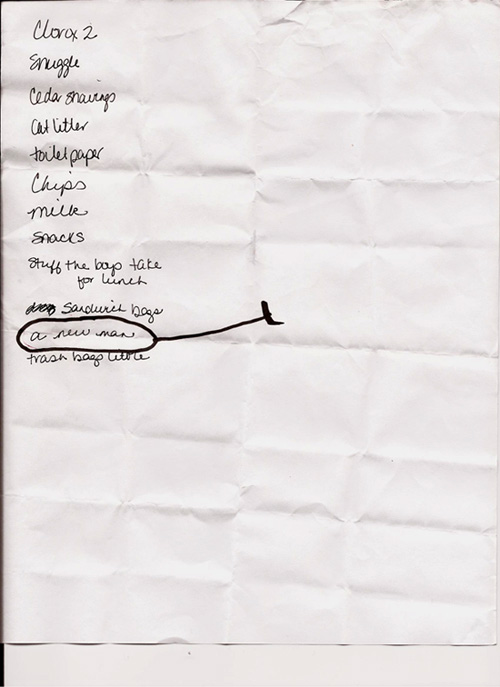 Clorox 2
Snuggle
Cedar shavings
Cat litter
toilet paper
Chips
milk
snacks
Stuff the boys take
for lunch
Sandwich bags
a new man
trash bags little